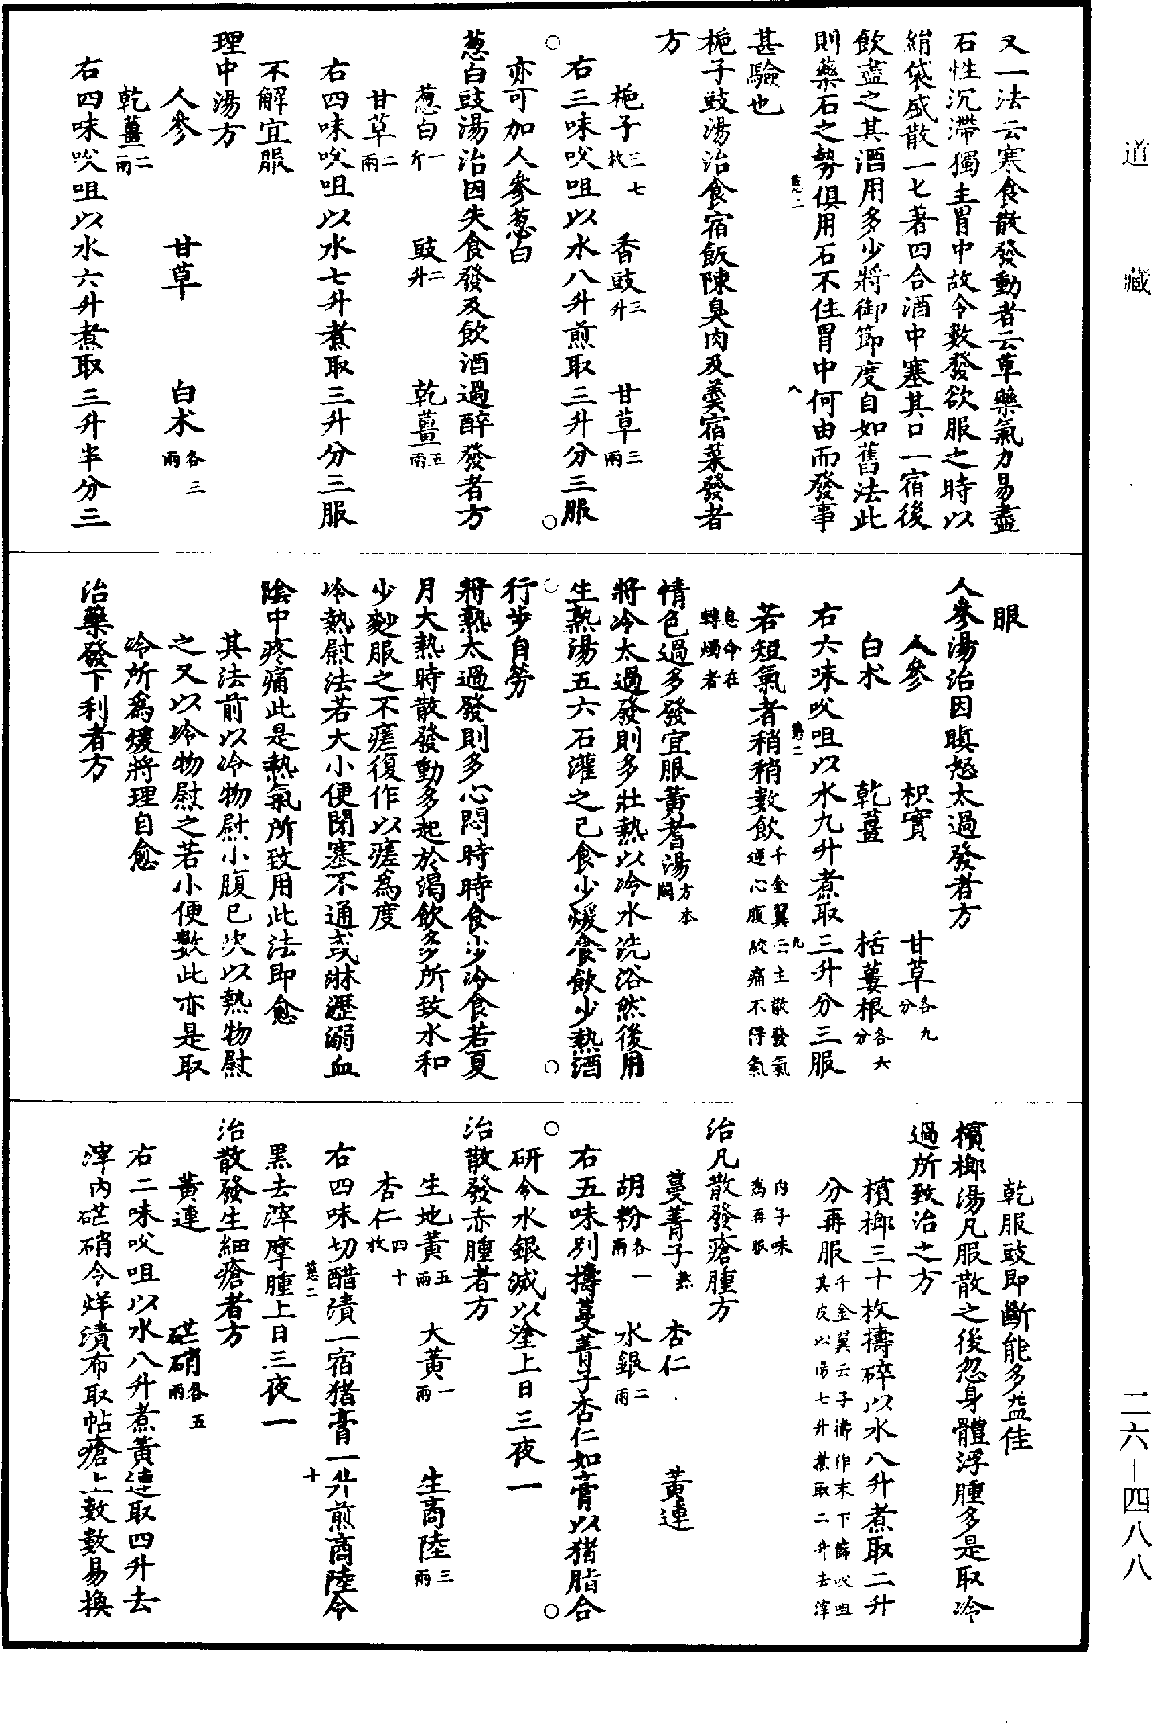 道藏
二六—四八八
又一法云寒食散發動者云草藥氣力易盡
石性沉滯獨主胃中故令數發欲服之時以
絹袋盛散一匕著四合酒中塞其口一宿後
飲盡之其酒用多少將御節度自如舊法此
則藥石之勢俱用石不住胃中何由而發事
甚驗也
梔子豉湯治食宿飯陳臭肉及羹宿菜發者
方
梔子三七枚 香豉三升 甘草三兩
右三味㕮咀以水八升煎取三升分三服
亦可加人參葱白
葱白豉湯治因失食發及飲酒過醉發者方
葱白一斤 豉二升 乾薑五兩
甘草二兩
右四味㕮咀以水七升煮取三升分三服
不解宜服
理中湯方
人參 甘草 白术各三兩
乾薑二兩
右四味㕮咀以水六升煮取三升半分三
服
人參湯治因瞋怒太過發者方
人參 枳實 甘草各九分
白术 乾薑 栝蔞根各六分
右六味㕮咀以水九升煮取三升分三服
若短氣者稍稍數飲千金翼云主散發氣逆心腹絞痛不得氣
息命在轉燭者
情色過多發宜服黃耆湯方本闕
將冷太過發則多壯熱以冷水洗浴然後用
生熟湯五六石灌之已食少煖食飲少熱酒
行步自勞
將熱太過發則多心悶時時食少冷食若夏
月大熱時散發動多起於渴飲多所致水和
少麨服之不瘥復作以瘥為度
冷熱慰法若大小便閉塞不通或淋瀝溺血
陰中疼痛此是熱氣所致用此法即愈
其法前以冷物慰小腹已次以熱物慰
之又以冷物慰之若小便數此亦是取
冷所為煖將理自愈
治藥發下利者方
乾服豉即斷能多益佳
檳榔湯凡服散之後忽身體浮腫多是取冷
過所致治之方
檳榔三十枚擣碎以水八升煮取二升
分再服千金翼云子擣作末下篩㕮咀其皮以湯七升煮取二升去滓
內子味為再服
治凡散發瘡腫方
蔓菁子熬 杏仁 黃連
胡粉各一兩 水銀二兩
右五味別擣蔓菁子杏仁如膏以猪脂合
研令水銀滅以塗上日三夜一
治散發赤腫者方
生地黃五兩 大黃一兩 生商陸三兩
杏仁四十枚
右四味切醋漬一宿猪膏一升煎商陸令
黑去滓摩腫上日三夜一
治散發生細瘡者方
黃連 芒硝各五兩
右二味㕮咀以水八升煮黃連取四升去
滓內芒硝令烊漬布取帖瘡上數數易換